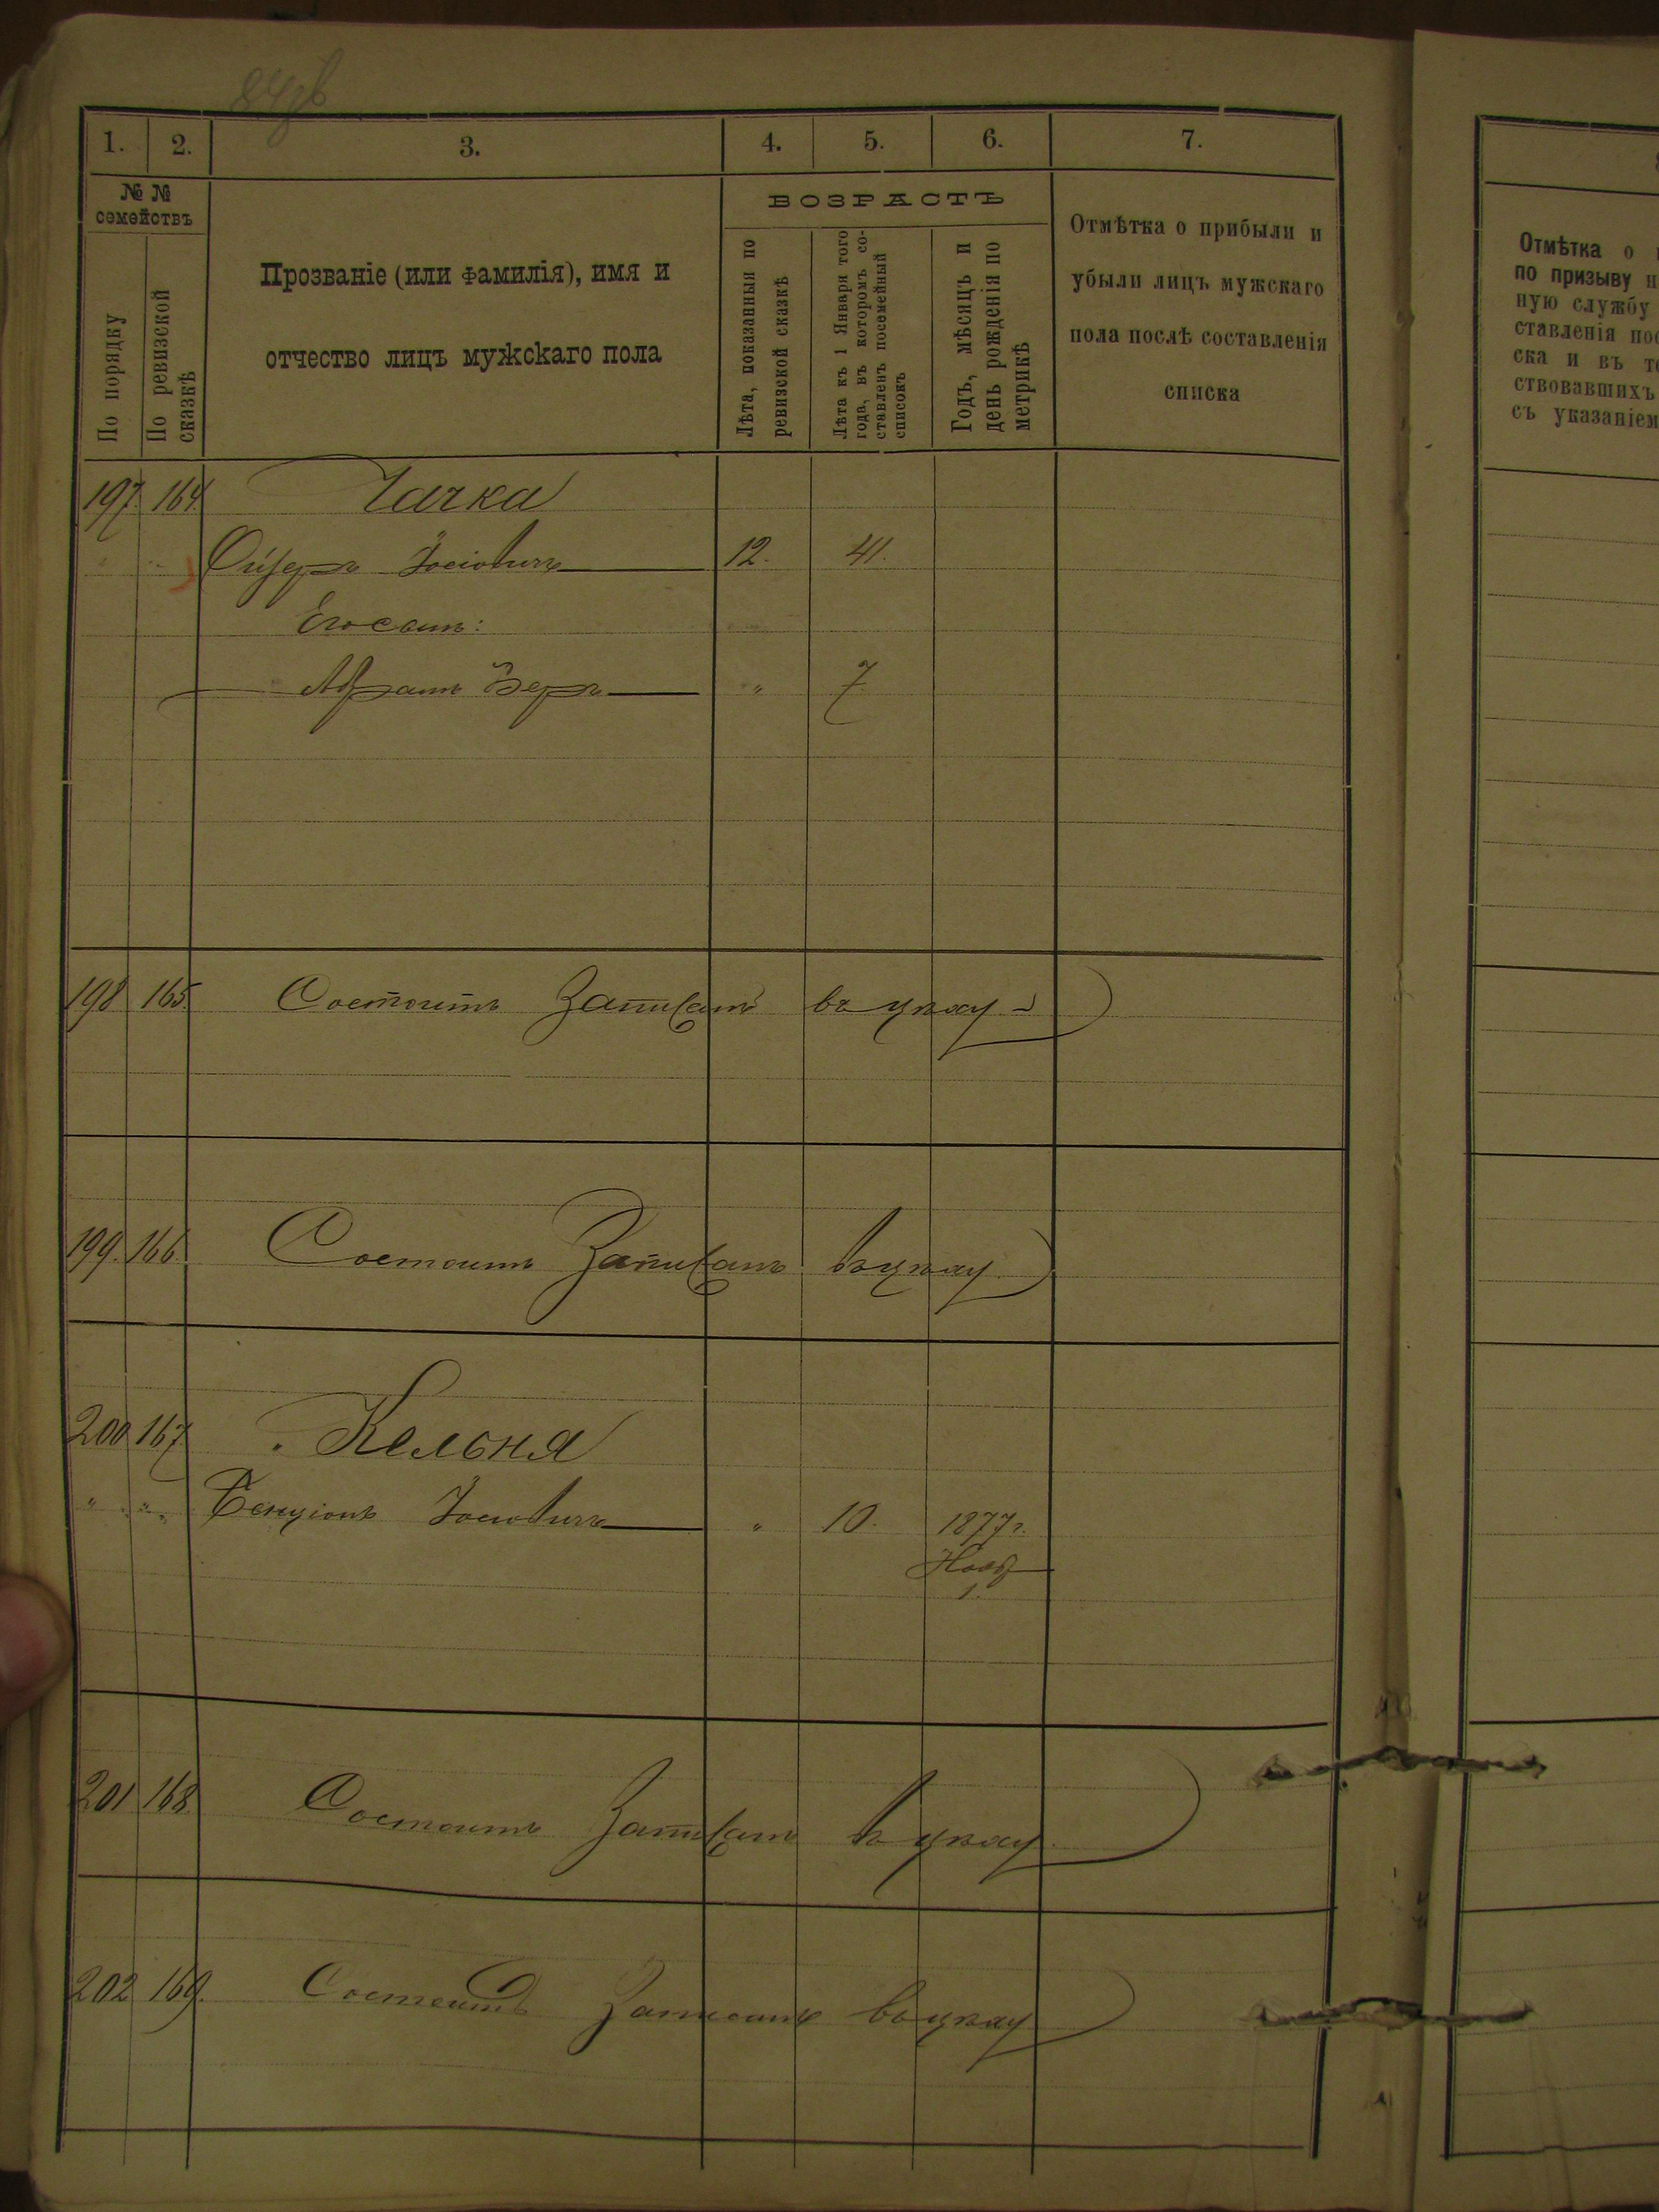 1. 2. 3. 4. 5. 6. 7.
№ № семействъ
По порядку
По ревизской сказкѣ
Прозваніе (или фамилія), имя и
отчество лицъ мужскаго пола
ВОЗРАСТЪ
Лѣта, показанныя по
ревизской сказкѣ
Лѣта къ 1 Января того
года, въ которомъ со-
ставленъ посемейный
списокъ
Годъ, мѣсяцъ и
день рожденія по
метрикѣ
Отмѣтка о прибыли и
убыли лицъ мужскаго
пола послѣ составленія
списка
Отмѣтка о
по призыву
ную службу
ставленія
ска и въ
ствовавшихъ
съ указаніем
197. 164. Чачка
Іосіовичъ 12. 41.
Его сынъ:
Абрамъ Беръ " 7
198 165. Состоитъ Записанъ въ
199. 166. Состоитъ Записанъ
200 167 Кельня
" " Бенціонъ Іосіовичъ " 10. 1877 г.
Нояб
1.
201 168. Состоитъ Записанъ въ
202 169. Состоитъ Записанъ